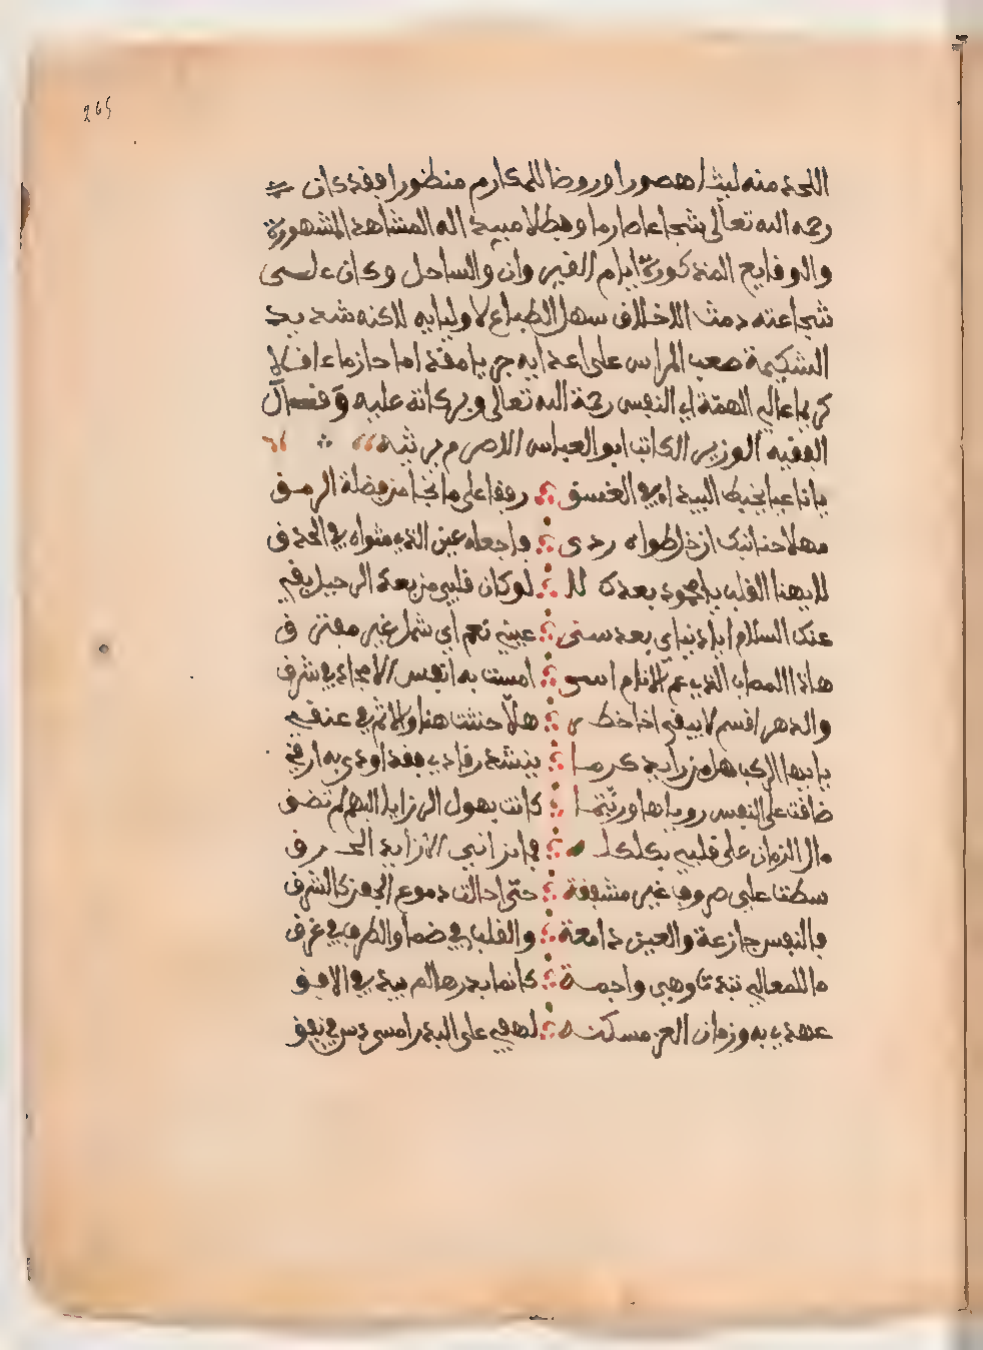 265
اللحد منه ليثا هصورا وروضا للمكارم منظورا فقد كان
رحمه الله تعالى شجاعا صارما وبطلا مبيدا له المشاهد المشهورة
والوقايع المذكورة ايام القيروان والساحل وكان على
شجاعته دمث الاخلاق سهل الطباع لاوليايه لاكنه شديد
الشكيمة صعب المراس على اعدايه جريا مقداما حازما عاقلا
كريما عالي الهمة ابي النفس رحمة الله تعالى وبركاته عليه وقال
الفقيه الوزير الكاتب ابو العباس الاصرم يرثيه
يا ناعيا بخيط البيد في الغسق رفقا على ما نجا من فضلة الرمق
مهلا حنانيك ان طواه ردى واجعله عين الذي مثواه في الحدق
لا يهنا القلب يا محمود بعدك لا لو كان قلبي من بعد الرحيل بقي
عنك السلام ايا دنياي بعد سنى عيني نعم اي شمل غير مفترق
هاذا المصاب الذي عم الانام اسى امست به انفس الامجاد في شرق
والدهر اقسم لا يبقي اخا خطر هلا حنثت هنا والاثم في عنقي
يا ايها الركب هل من رايد كرما ينشد رقادي فقد اودى به ارقي
ضاقت على النفس روياها وربتما كانت بهول الرزايا الدهم لم تضق
مال الزمان على قلبي بكلكله
سطت علي صروف غير مشفقة حتى احالت دموع الجفن كالشرق
فالنفس جازعة والعين دامعة والقلب في ضما والطرف في غرق
ما للمعالي وهي واجمة كانما بدرها لم يبد في الافق
عهدي به وزمان العز مسكنه لهفي على البدر امسى في نفق